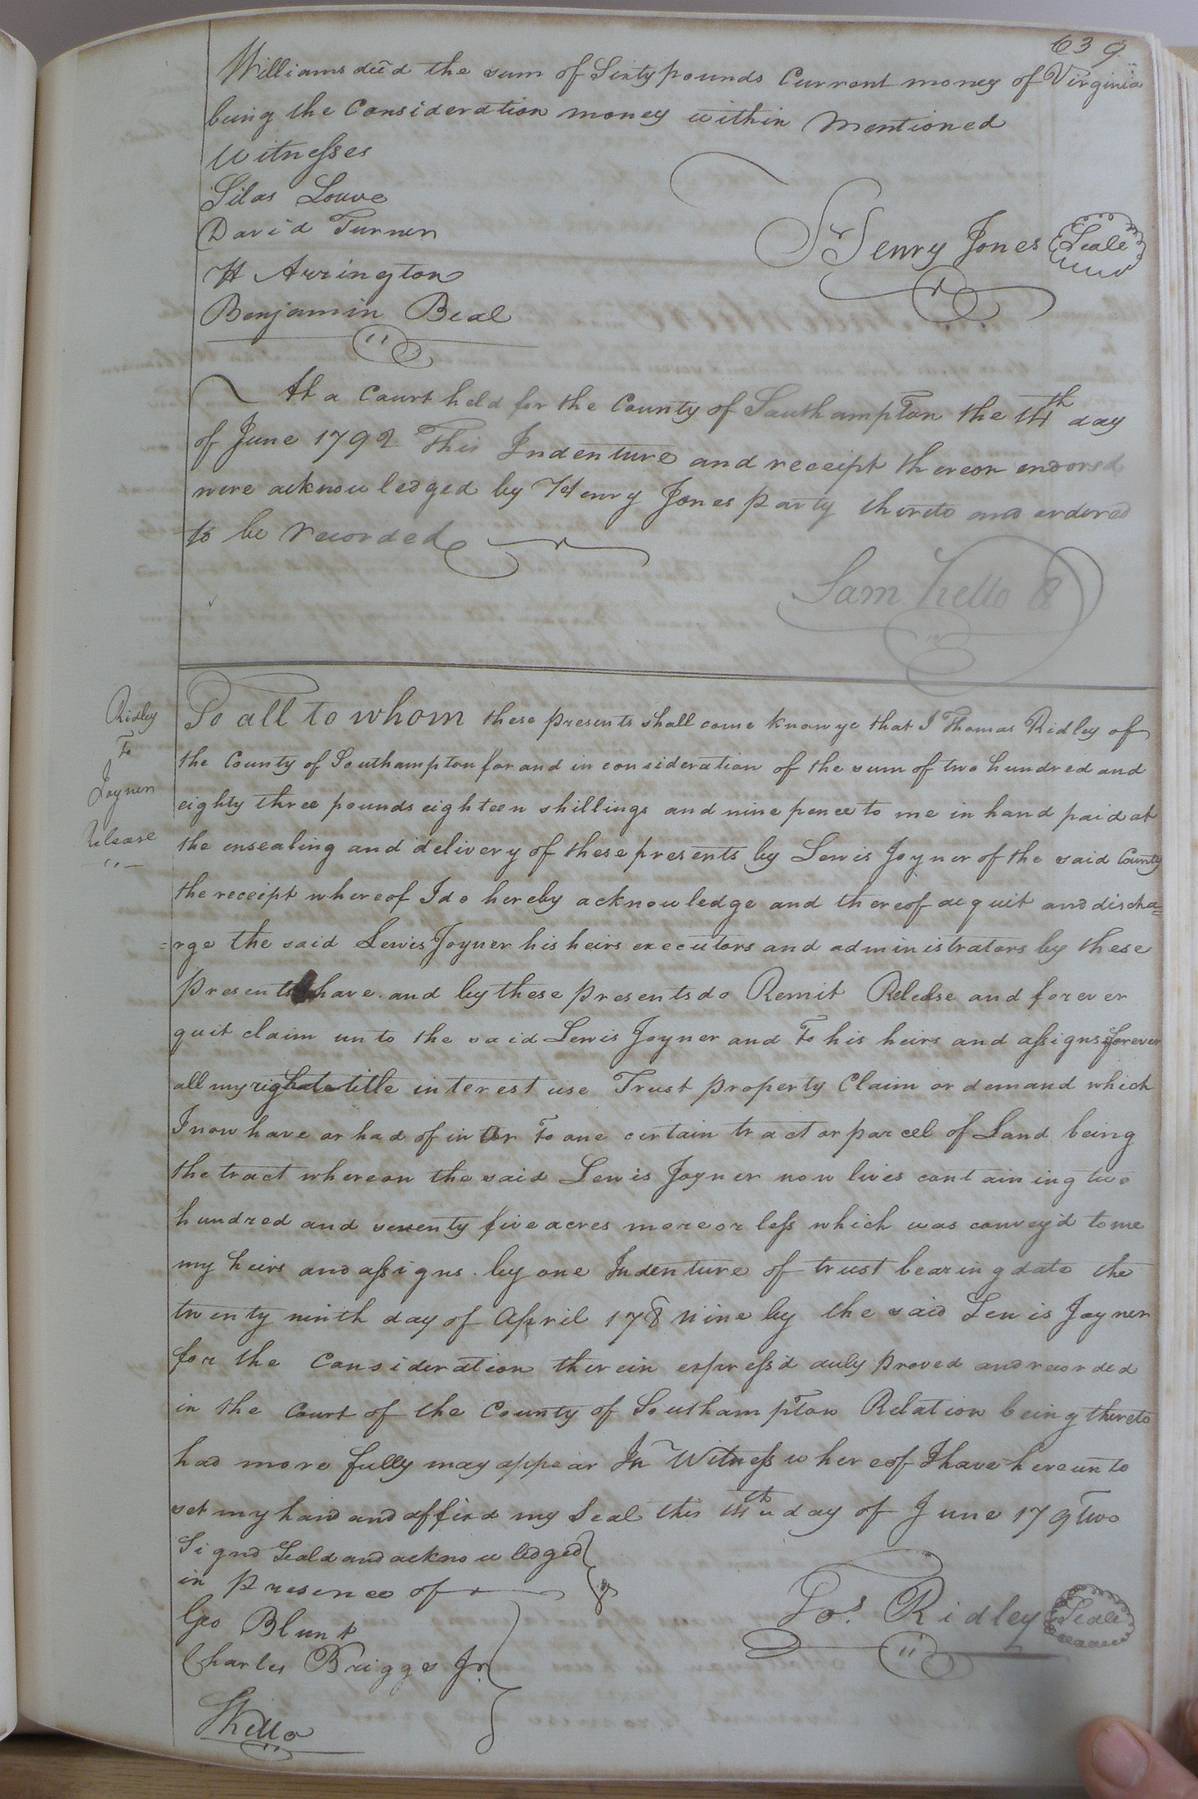 639
Williams dec̄d the sum of Sixty pounds Current money of Virginia
being the Consideration money within Mentioned
Witnesses
Silas Louve
David Turner
H Arrington
Benjamin Beal
Henry Jones Seale
At a Court held for the County of Southampton the 14th day
of June 1792 This Indenture and receipt thereon endorsed
were acknowledged by Henry Jones party thereto and ordered
to be recorded
Sam Kello
Ridley
To
Joyner
Release
To all to whom these presents shall come know ye that I Thomas Ridley of
the County of Southampton for and in consideration of the sum of two hundred and
eighty three pounds eighteen shillings and nine pence to me in hand paid at
the ensealing and delivery of these presents by Lewis Joyner of the said County
the receipt whereof I do hereby acknowledge and thereof acquit and discha=
=rge the said Lewis Joyner his heirs executors and administrators by these
presents have and by these presents do Remit Release and forever
quit claim unto the said Lewis Joyner and To his heirs and assigns forever
all my right title interest use Trust property Claim or demand which
I now have or had of in Or To one certain tract or parcel of Land being
the tract whereon the said Lewis Joyner now lives containing two
hundred and seventy five acres more or less which was convey'd to me
my heirs and assigns by one Indenture of trust bearing date the
twenty ninth day of April 178 nine by the said Lewis Joyner
for the Consideration therein express'd duly proved and recorded
in the Court of the County of Southampton Relation being thereto
had more fully may appear In Witness whereof I have hereunto
set my hand and affixd my Seal this 14th day of June 179 two
Signd Seald and acknowledged
in presence of
Geo Blunt
Charles Briggs Jr.
SKello
Tos. Ridley Seale